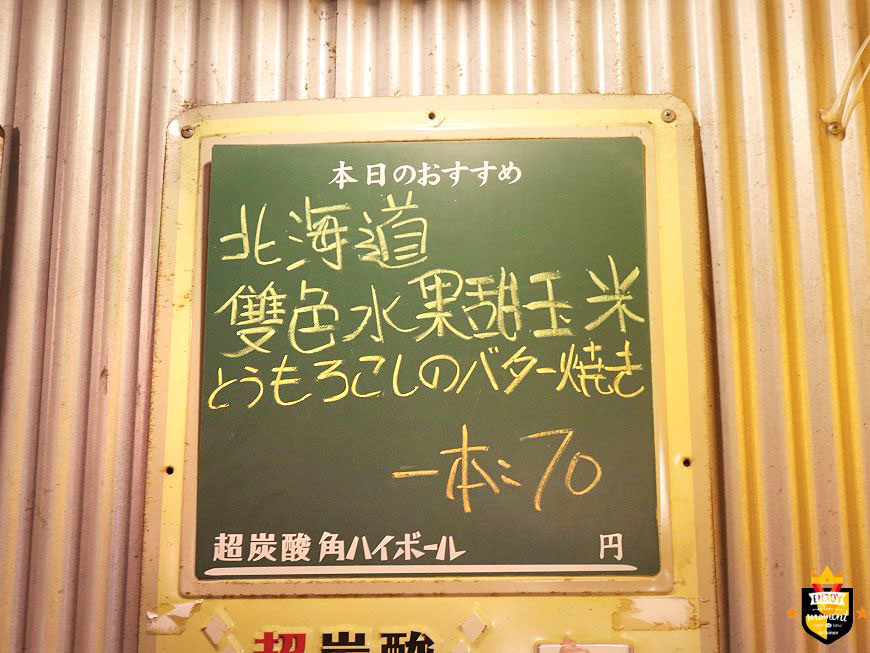 本日のおすすめ
北海道
雙色水果甜玉米
とうもろこしのバター焼き
一本:70
超炭酸角ハイボール 円
超炭酸
ENJOY
moment